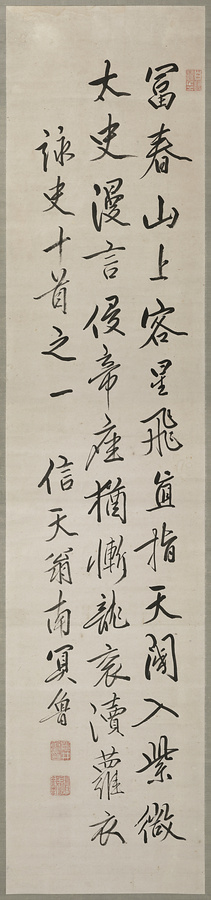 富春山上客星飛直指天閽入紫微
太史漫言侵帝座猶慚龍袞瀆蘿衣
詠史十首之一　信天翁南冥魯